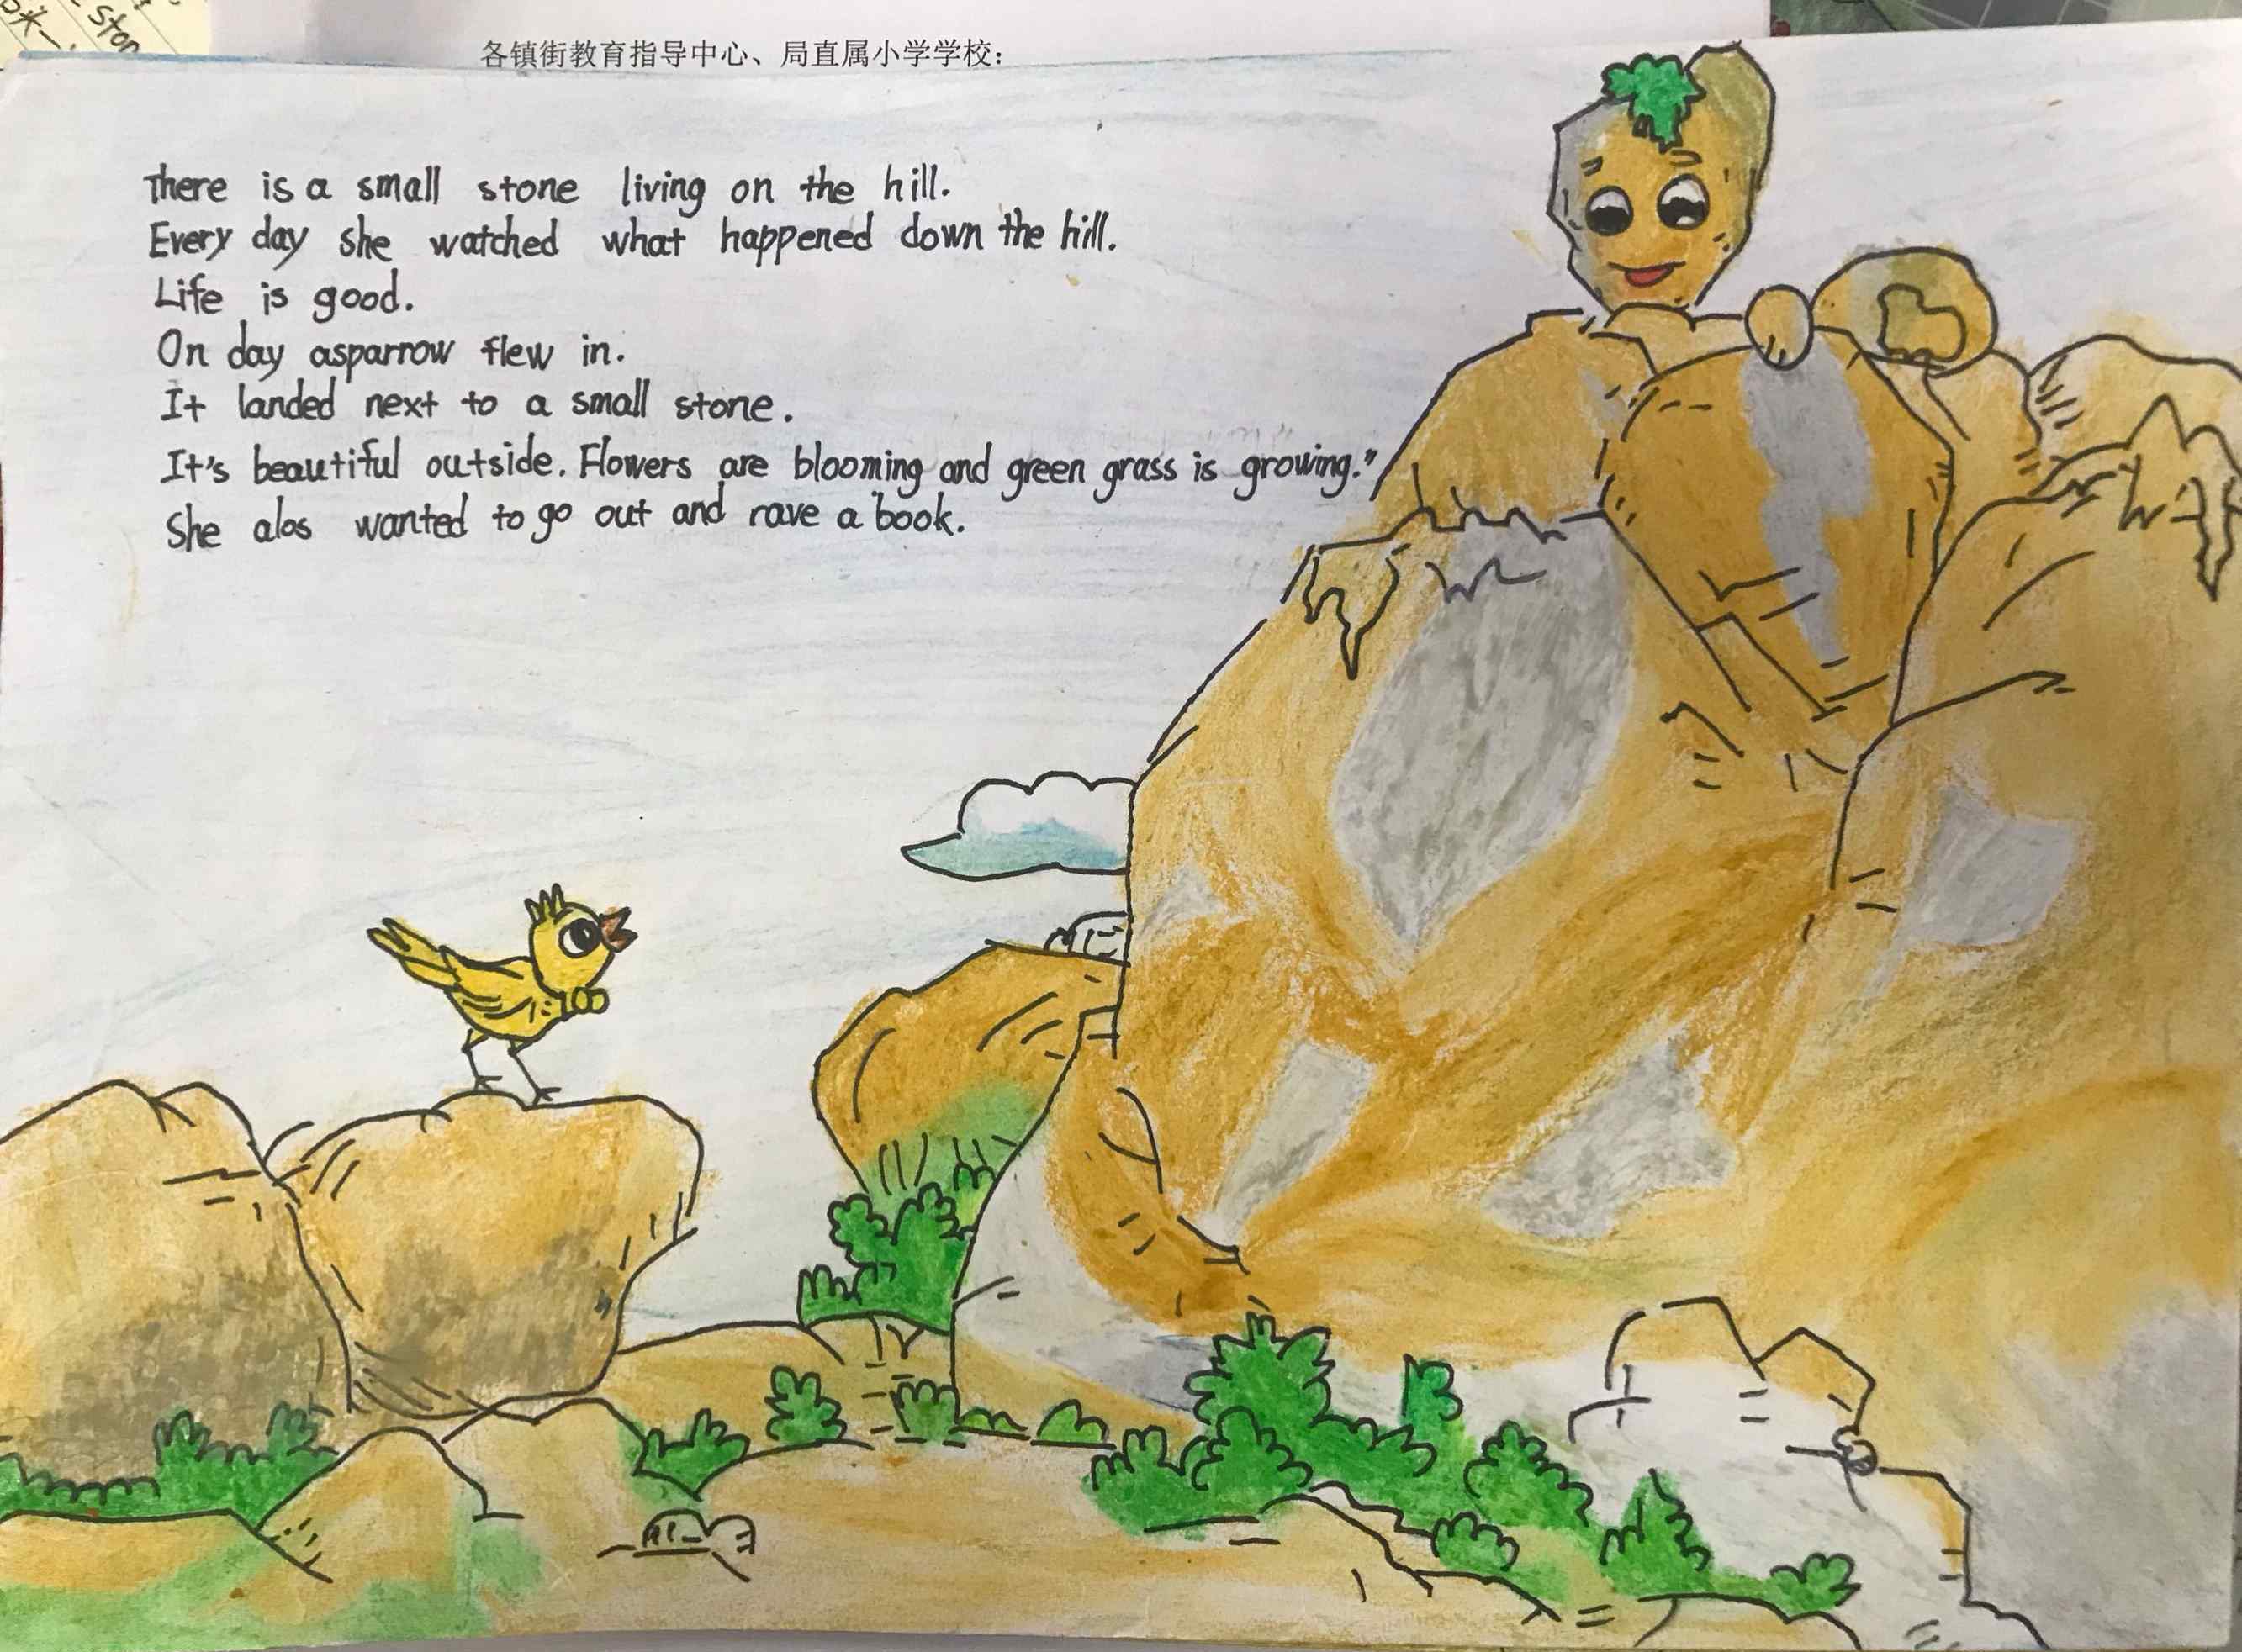 米一
stor
各镇街教育指导中心、局直属小学学校：
There is a small stone living on the hill.
Every day she watched what happened down the hill.
Life is good.
On day asparrow flew in.
It landed next to a small stone.
It's beautiful outside. Flowers are blooming and green grass is growing."
She alos wanted to go out and rave a book.